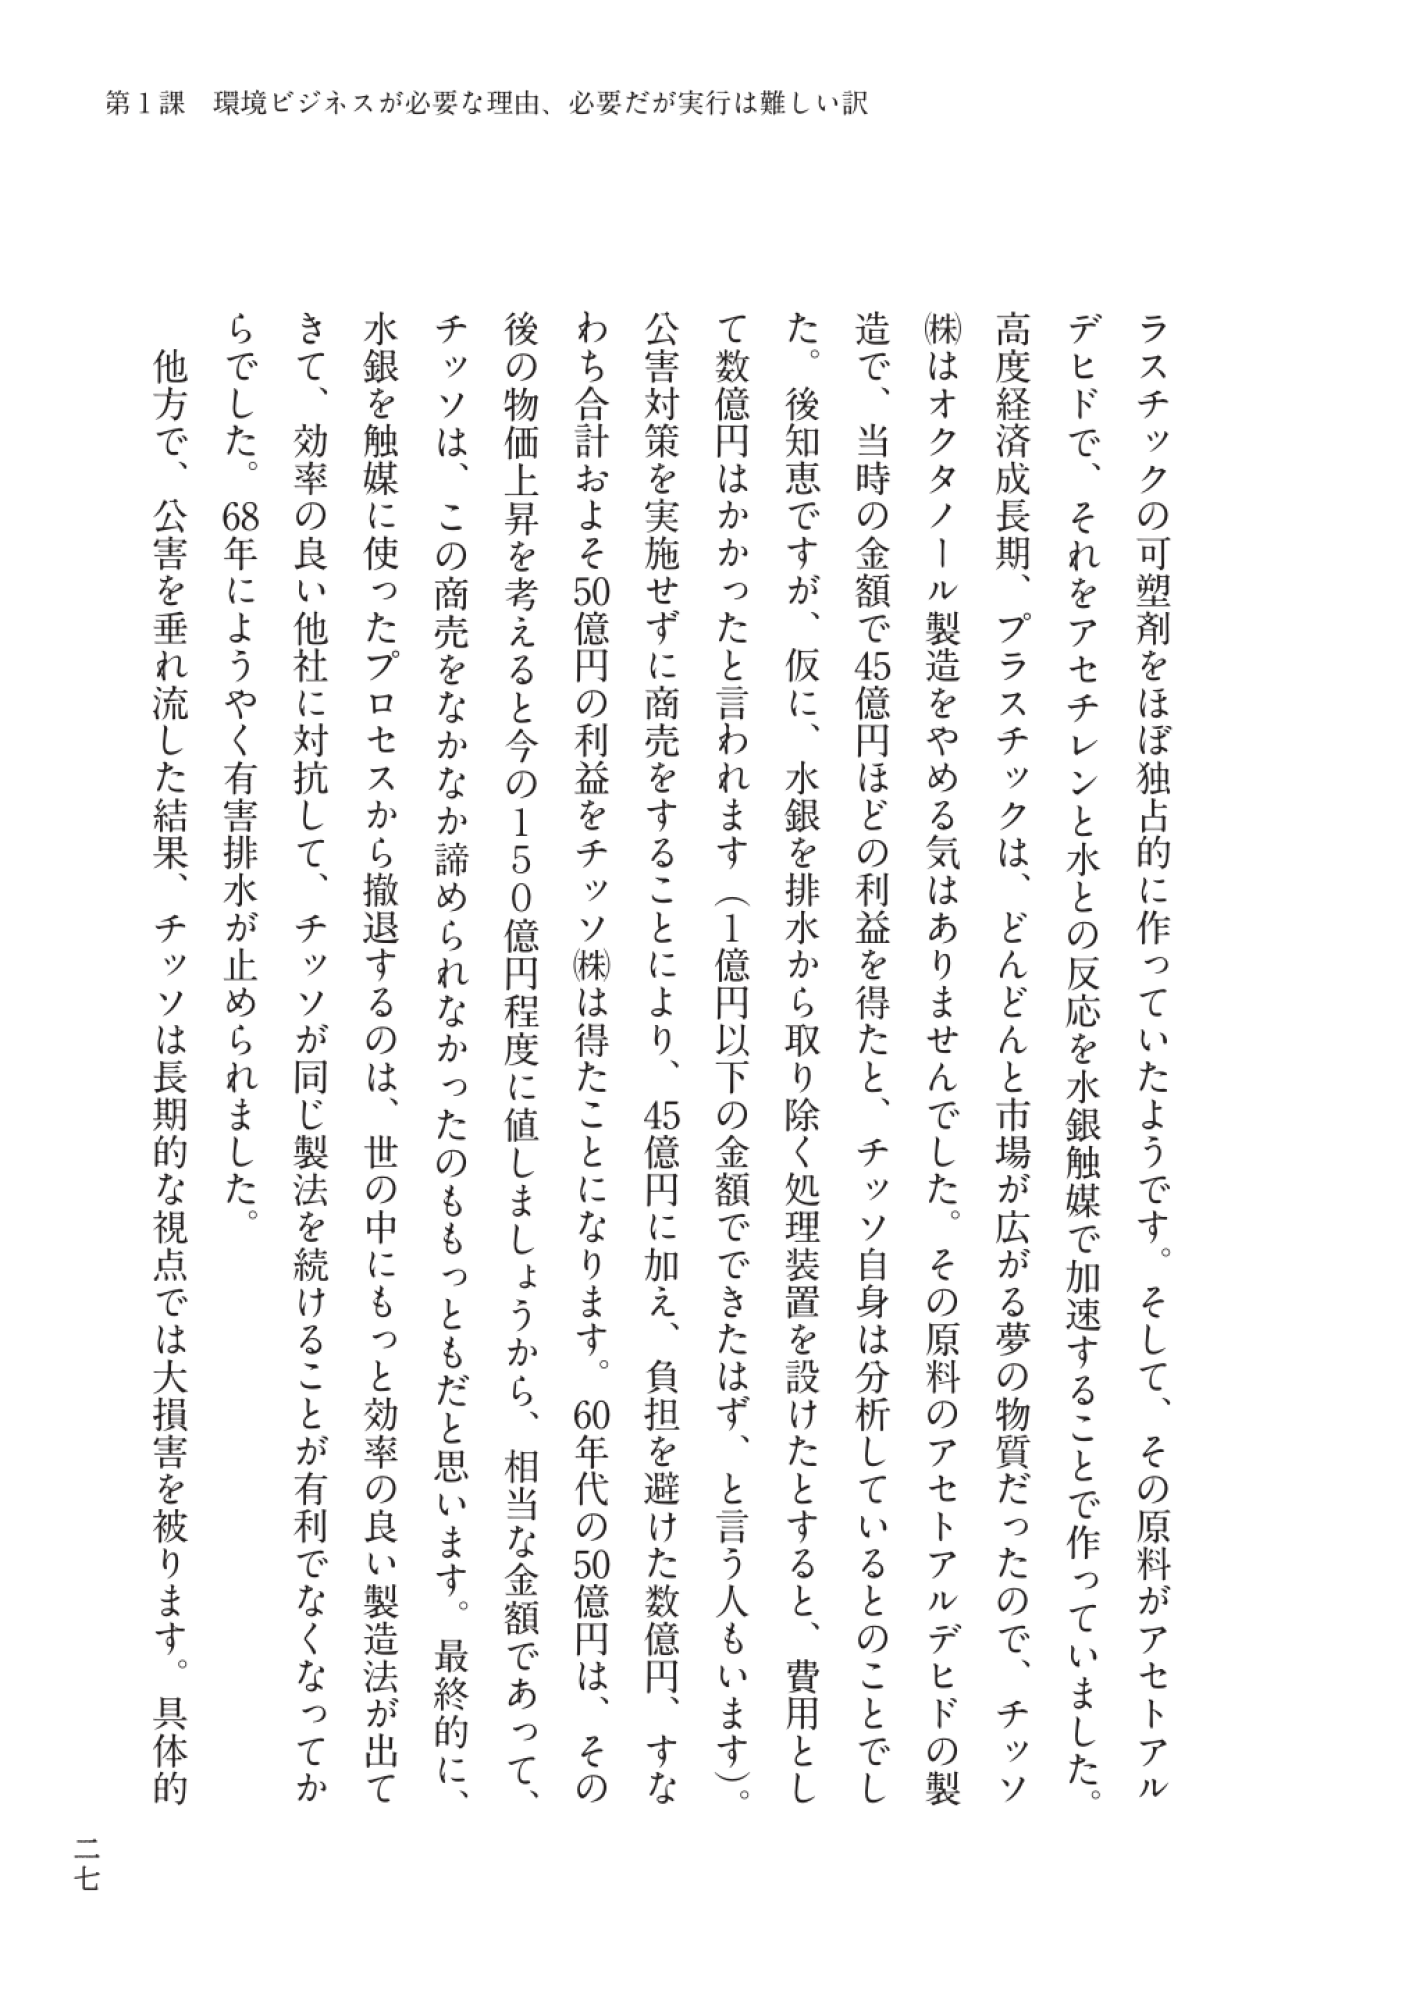 第1課　環境ビジネスが必要な理由、必要だが実行は難しい訳
ラスチックの可塑剤をほぼ独占的に作っていたようです。そして、その原料がアセトアル
デヒドで、それをアセチレンと水との反応を水銀触媒で加速することで作っていました。
高度経済成長期、プラスチックは、どんどんと市場が広がる夢の物質だったので、チッソ
㈱はオクタノール製造をやめる気はありませんでした。その原料のアセトアルデヒドの製
造で、当時の金額で45億円ほどの利益を得たと、チッソ自身は分析しているとのことでし
た。後知恵ですが、仮に、水銀を排水から取り除く処理装置を設けたとすると、費用とし
て数億円はかかったと言われます（1億円以下の金額でできたはず、と言う人もいます）。
公害対策を実施せずに商売をすることにより、45億円に加え、負担を避けた数億円、すな
わち合計およそ50億円の利益をチッソ㈱は得たことになります。60年代の50億円は、その
後の物価上昇を考えると今の150億円程度に値しましょうから、相当な金額であって、
チッソは、この商売をなかなか諦められなかったのももっともだと思います。最終的に、
水銀を触媒に使ったプロセスから撤退するのは、世の中にもっと効率の良い製造法が出て
きて、効率の良い他社に対抗して、チッソが同じ製法を続けることが有利でなくなってか
らでした。68年にようやく有害排水が止められました。
　他方で、公害を垂れ流した結果、チッソは長期的な視点では大損害を被ります。具体的
二七